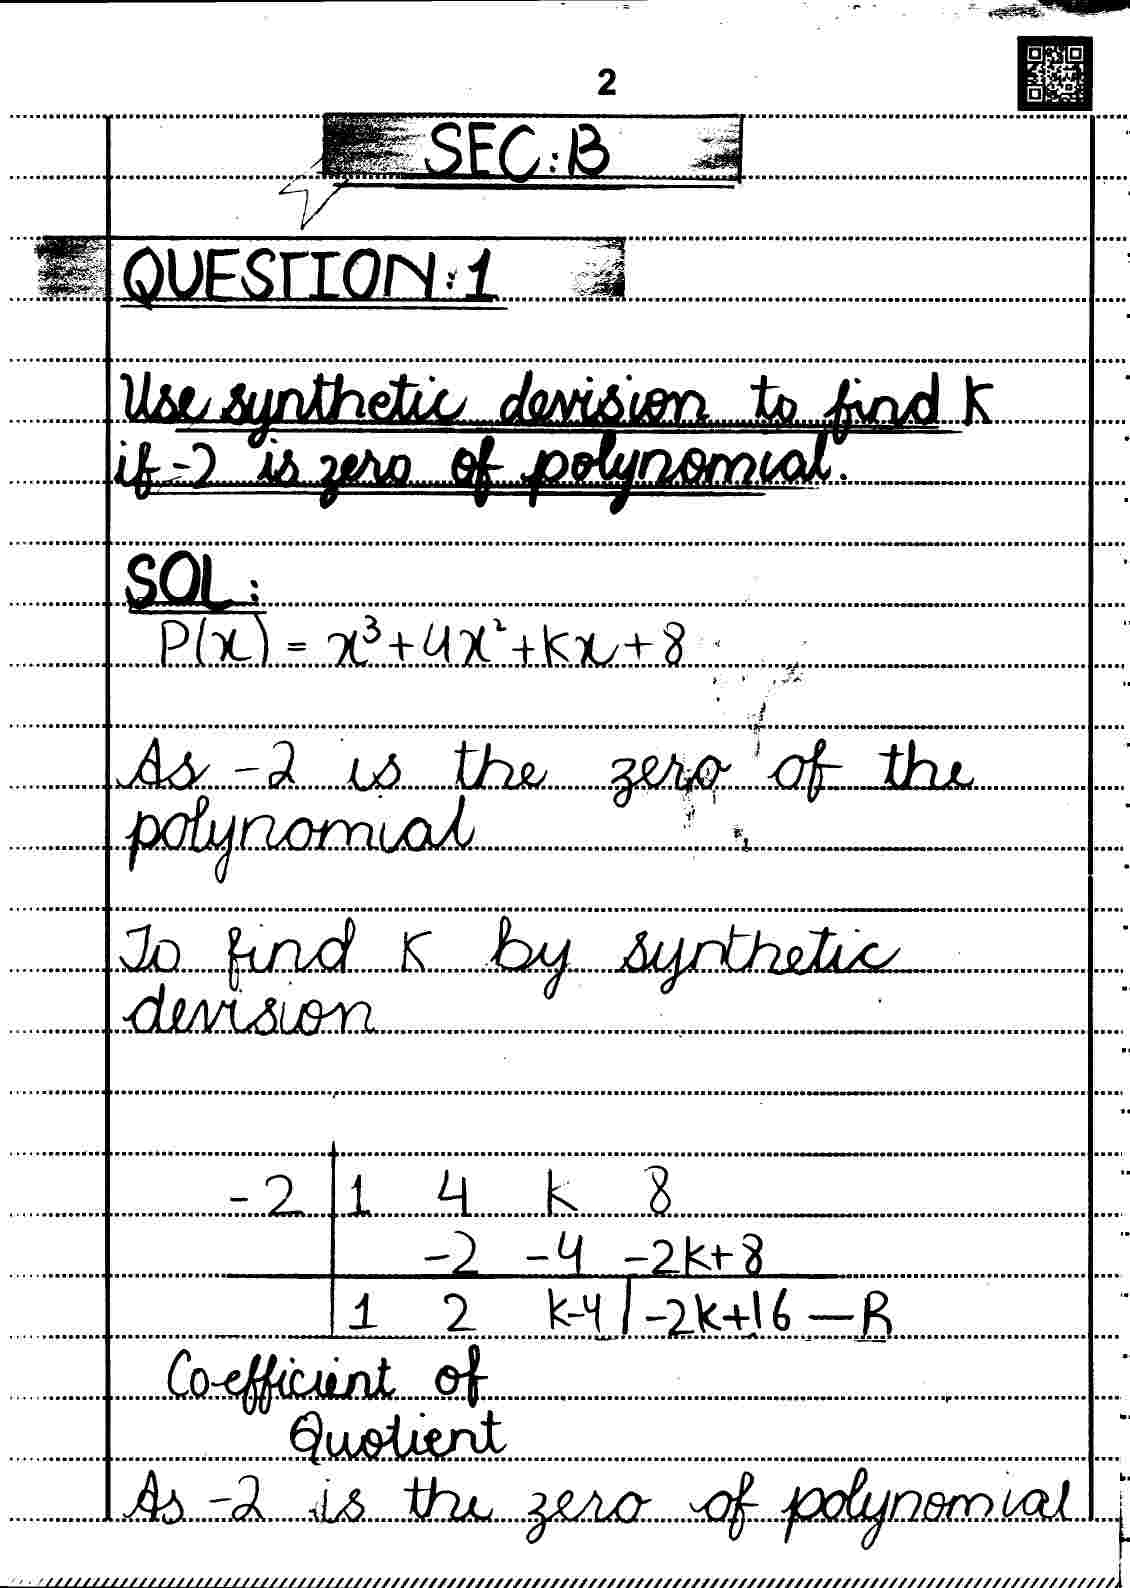 2
SEC:B
QUESTION:1
Use synthetic devision to find K
if -2 is zero of polynomial.
SOL:
P(x) = x³+4x²+Kx+8
As -2 is the zero of the
polynomial
To find K by synthetic
devision
-2 | 1 4 k 8
-2 -4 -2k+8
1 2 k-4 | -2k+16 — R
Co-efficient of
Quotient
As -2 is the zero of polynomial